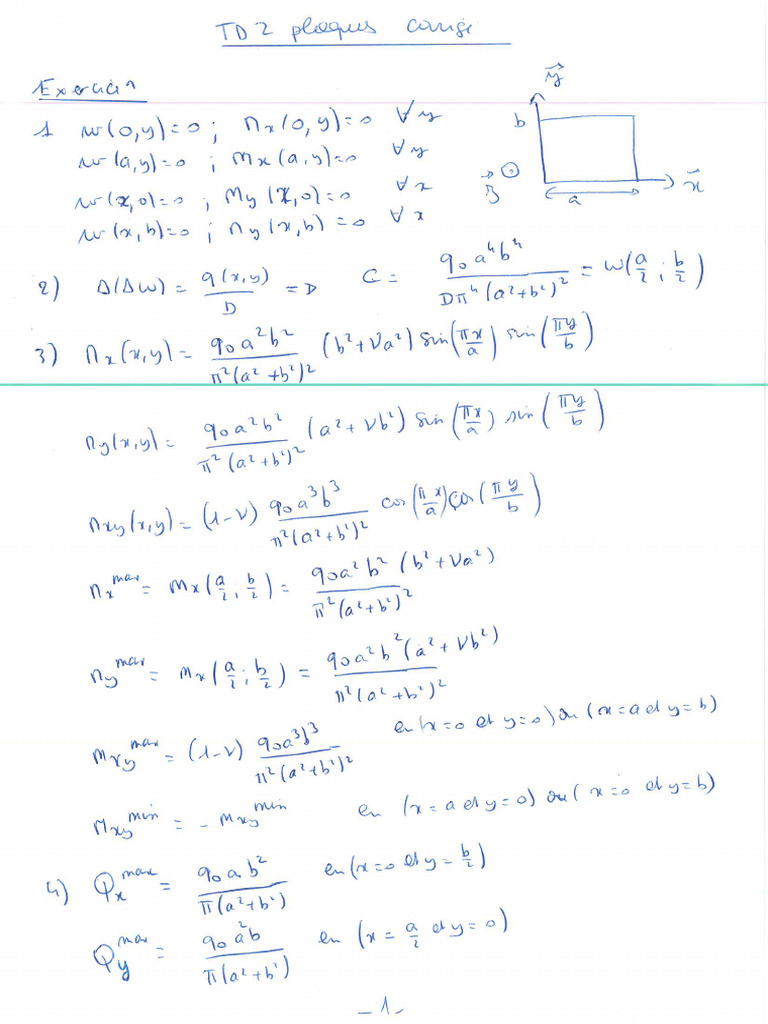 TD2 plaques corrigé
Exercice 1
1 w(0,y)=0 ; Mx(0,y)=0 ∀y
w(a,y)=0 ; Mx(a,y)=0 ∀y
w(x,0)=0 ; My(x,0)=0 ∀x
w(x,b)=0 ; My(x,b)=0 ∀x
y⃗
b
z⃗
a
x⃗
2) Δ(Δw) = q(x,y)/D => C = q0a⁴b⁴/(Dπ⁴(a²+b²)²) = w(a/2 ; b/2)
3) Mx(x,y) = q0a²b²/(π²(a²+b²)²) (b²+νa²) sin(πx/a) sin(πy/b)
My(x,y) = q0a²b²/(π²(a²+b²)²) (a²+νb²) sin(πx/a) sin(πy/b)
Mxy(x,y) = (1-ν) q0a³b³/(π²(a²+b²)²) cos(πx/a) cos(πy/b)
Mx^max = Mx(a/2, b/2) = q0a²b²(b²+νa²)/(π²(a²+b²)²)
My^max = Mx(a/2 ; b/2) = q0a²b²(a²+νb²)/(π²(a²+b²)²)
Mxy^max = (1-ν) q0a³b³/(π²(a²+b²)²) en (x=0 et y=0) ou (x=a et y=b)
Mxy^min = - Mxy^min en (x=a et y=0) ou (x=0 et y=b)
4) Qx^max = q0ab²/(π(a²+b²)) en (x=0 et y=b/2)
Qy^max = q0a²b/(π(a²+b²)) en (x=a/2 et y=0)
-1-